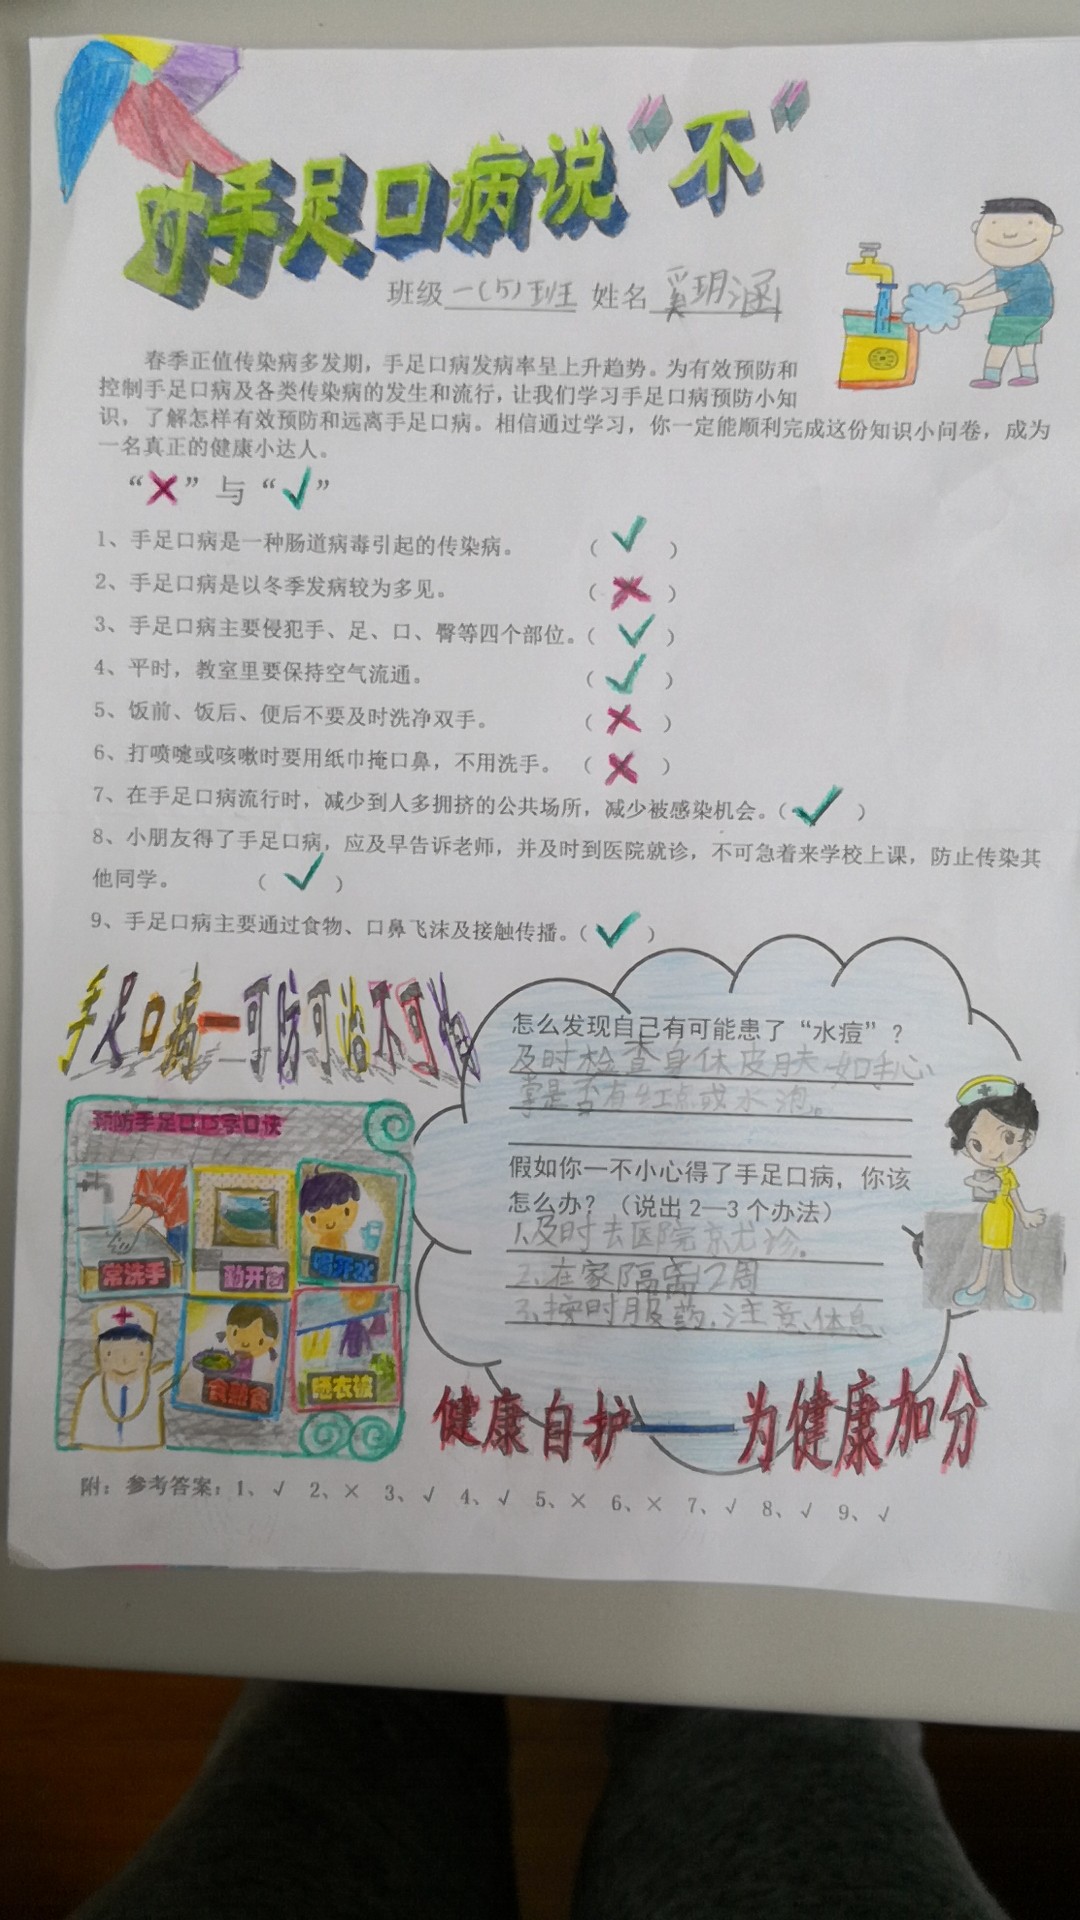 对手足口病说“不”
班级 一(5)班 姓名 奚玥涵
春季正值传染病多发期，手足口病发病率呈上升趋势。为有效预防和
控制手足口病及各类传染病的发生和流行，让我们学习手足口病预防小知
识，了解怎样有效预防和远离手足口病。相信通过学习，你一定能顺利完成这份知识小问卷，成为
一名真正的健康小达人。
“×”与“√”
1、手足口病是一种肠道病毒引起的传染病。（√）
2、手足口病是以冬季发病较为多见。（×）
3、手足口病主要侵犯手、足、口、臀等四个部位。（√）
4、平时，教室里要保持空气流通。（√）
5、饭前、饭后、便后不要及时洗净双手。（×）
6、打喷嚏或咳嗽时要用纸巾掩口鼻，不用洗手。（×）
7、在手足口病流行时，减少到人多拥挤的公共场所，减少被感染机会。（√）
8、小朋友得了手足口病，应及早告诉老师，并及时到医院就诊，不可急着来学校上课，防止传染其
他同学。（√）
9、手足口病主要通过食物、口鼻飞沫及接触传播。（√）
手足口病—可防可治不可怕
预防手足口口字口诀
常洗手
勤开窗
食熟食
晒衣被
怎么发现自己有可能患了“水痘”？
及时检查身体皮肤.如手心
掌是否有红点或水泡。
假如你一不小心得了手足口病，你该
怎么办？（说出2—3个办法）
1、及时去医院京尤诊。
2、在家隔离2周
3、按时服药.注意休息.
健康自护——为健康加分
附：参考答案：1、√ 2、× 3、√ 4、√ 5、× 6、× 7、√ 8、√ 9、√